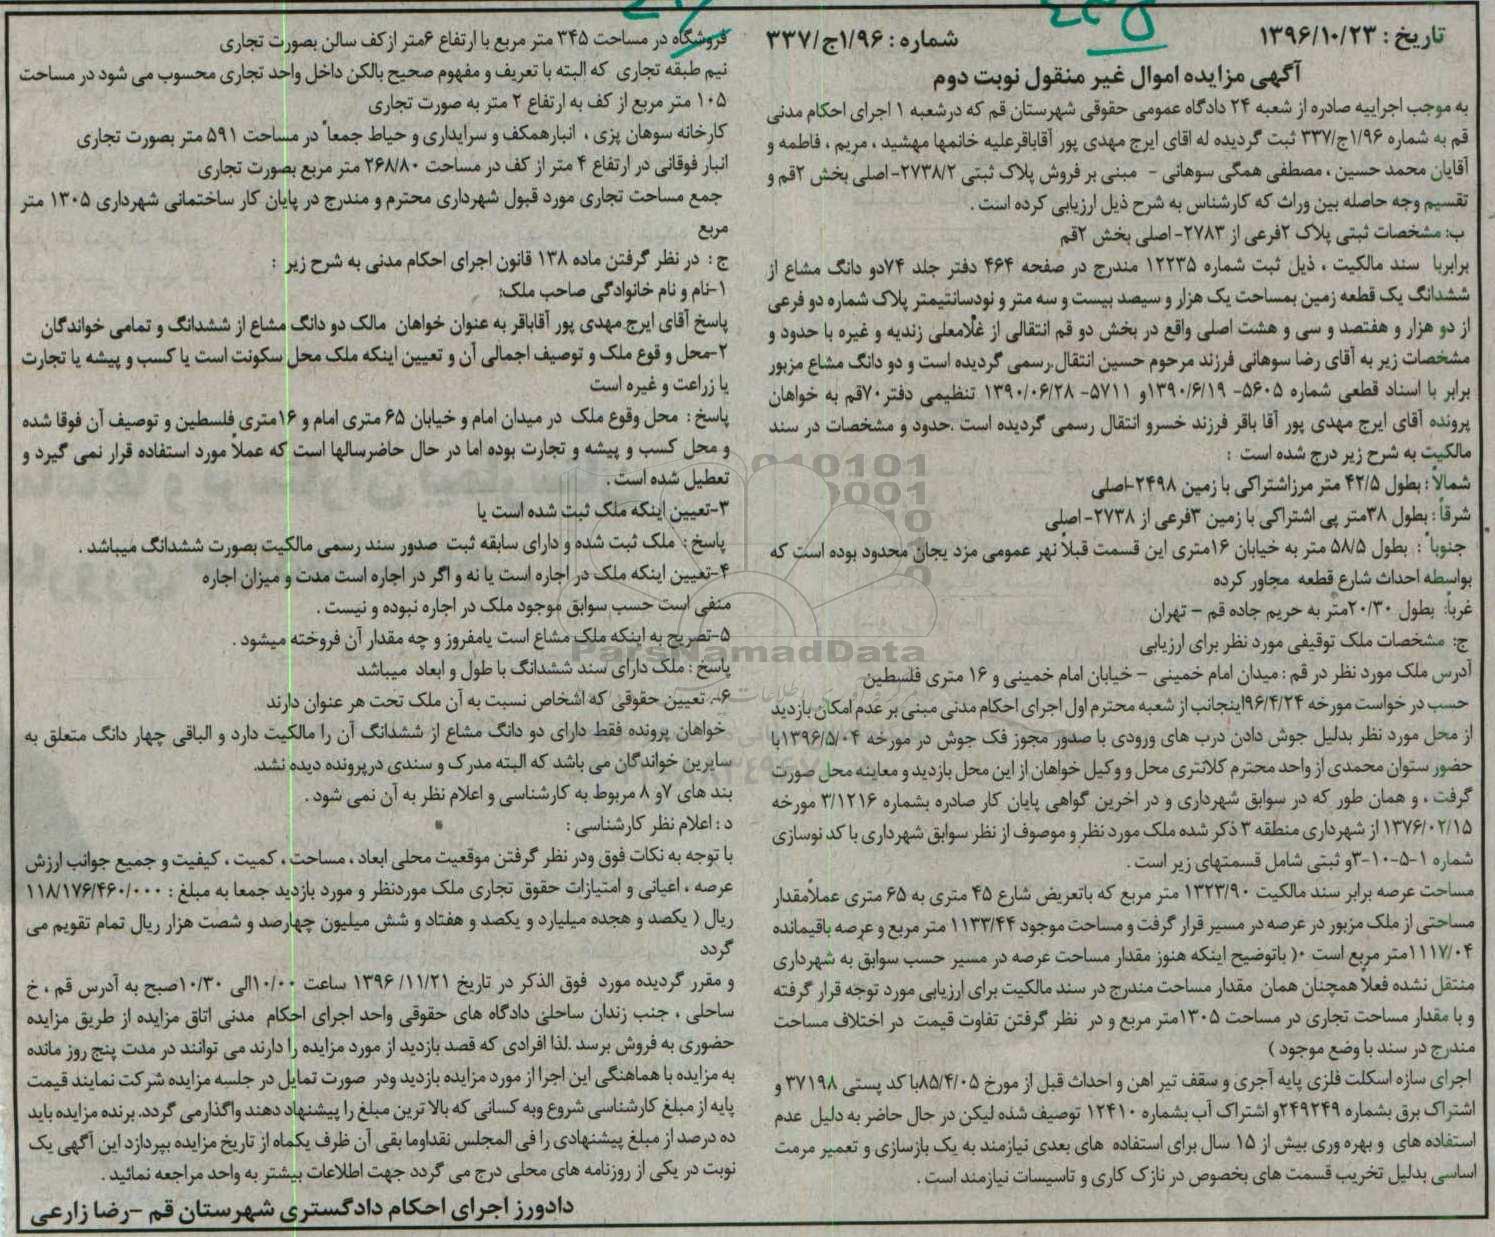 تاریخ : ۱۳۹۶/۱۰/۲۳
شماره : ۳۳۷/ج۱/۹۶
آگهی مزایده اموال غیر منقول نوبت دوم
به موجب اجراییه صادره از شعبه ۲۴ دادگاه عمومی حقوقی شهرستان قم که درشعبه ۱ اجرای احکام مدنی
قم به شماره ۳۳۷/ج۱/۹۶ ثبت گردیده له اقای ایرج مهدی پور آقاباقرعلیه خانمها مهشید ، مریم ، فاطمه و
آقایان محمد حسین ، مصطفی همگی سوهانی - مبنی بر فروش پلاک ثبتی ۲۷۳۸/۲- اصلی بخش ۲قم و
تقسیم وجه حاصله بین وراث که کارشناس به شرح ذیل ارزیابی کرده است .
ب: مشخصات ثبتی پلاک ۲فرعی از ۲۷۸۳- اصلی بخش ۲قم
برابربا سند مالکیت ، ذیل ثبت شماره ۱۲۲۳۵ مندرج در صفحه ۴۶۴ دفتر جلد ۷۴دو دانگ مشاع از
ششدانگ یک قطعه زمین بمساحت یک هزار و سیصد بیست و سه متر و نودسانتیمتر پلاک شماره دو فرعی
از دو هزار و هفتصد و سی و هشت اصلی واقع در بخش دو قم انتقالی از غلامعلی زندیه و غیره با حدود و
مشخصات زیر به آقای رضا سوهانی فرزند مرحوم حسین انتقال.رسمی گردیده است و دو دانگ مشاع مزبور
برابر با اسناد قطعی شماره ۵۶۰۵- ۱۳۹۰/۶/۱۹و ۵۷۱۱- ۱۳۹۰/۰۶/۲۸ تنظیمی دفتر۷۰قم به خواهان
پرونده آقای ایرج مهدی پور آقا باقر فرزند خسرو انتقال رسمی گردیده است .حدود و مشخصات در سند
مالکیت به شرح زیر درج شده است :
شمالاً : بطول ۴۲/۵ متر مرزاشتراکی با زمین ۲۴۹۸-اصلی
شرقاً : بطول ۳۸متر پی اشتراکی با زمین ۳فرعی از ۲۷۳۸- اصلی
جنوباً : بطول ۵۸/۵ متر به خیابان ۱۶متری این قسمت قبلاً نهر عمومی مزد یجان محدود بوده است که
بواسطه احداث شارع قطعه مجاور کرده
غرباً: بطول ۲۰/۳۰متر به حریم جاده قم – تهران
ج: مشخصات ملک توقیفی مورد نظر برای ارزیابی
آدرس ملک مورد نظر در قم : میدان امام خمینی – خیابان امام خمینی و ۱۶ متری فلسطین
حسب در خواست مورخه ۹۶/۴/۲۴اینجانب از شعبه محترم اول اجرای احکام مدنی مبنی بر عدم امکان بازدید
از محل مورد نظر بدلیل جوش دادن درب های ورودی با صدور مجوز فک جوش در مورخه ۱۳۹۶/۵/۰۴با
حضور ستوان محمدی از واحد محترم کلانتری محل و وکیل خواهان از این محل بازدید و معاینه محل صورت
گرفت ، و همان طور که در سوابق شهرداری و در اخرین گواهی پایان کار صادره بشماره ۳/۱۲۱۶ مورخه
۱۳۷۶/۰۲/۱۵ از شهرداری منطقه ۳ ذکر شده ملک مورد نظر و موصوف از نظر سوابق شهرداری با کد نوسازی
شماره ۱-۵-۱۰-۳و ثبتی شامل قسمتهای زیر است .
مساحت عرصه برابر سند مالکیت ۱۳۲۳/۹۰ متر مربع که باتعریض شارع ۴۵ متری به ۶۵ متری عملاًمقدار
مساحتی از ملک مزبور در عرصه در مسیر قرار گرفت و مساحت موجود ۱۱۳۳/۴۴ متر مربع و عرصه باقیمانده
۱۱۱۷/۰۴متر مربع است .( باتوضیح اینکه هنوز مقدار مساحت عرصه در مسیر حسب سوابق به شهرداری
منتقل نشده فعلاً همچنان همان مقدار مساحت مندرج در سند مالکیت برای ارزیابی مورد توجه قرار گرفته
و با مقدار مساحت تجاری در مساحت ۱۳۰۵متر مربع و در نظر گرفتن تفاوت قیمت در اختلاف مساحت
مندرج در سند با وضع موجود )
اجرای سازه اسکلت فلزی پایه آجری و سقف تیر اهن و احداث قبل از مورخ ۸۵/۴/۰۵با کد پستی ۳۷۱۹۸ و
اشتراک برق بشماره ۲۴۹۲۴۹و اشتراک آب بشماره ۱۲۴۱۰ توصیف شده لیکن در حال حاضر به دلیل عدم
استفاده های و بهره وری بیش از ۱۵ سال برای استفاده های بعدی نیازمند به یک بازسازی و تعمیر مرمت
اساسی بدلیل تخریب قسمت های بخصوص در نازک کاری و تاسیسات نیازمند است .
فروشگاه در مساحت ۳۴۵ متر مربع با ارتفاع ۶متر از کف سالن بصورت تجاری
نیم طبقه تجاری که البته با تعریف و مفهوم صحیح بالکن داخل واحد تجاری محسوب می شود در مساحت
۱۰۵ متر مربع از کف به ارتفاع ۲ متر به صورت تجاری
کارخانه سوهان پزی ، انبارهمکف و سرایداری و حیاط جمعاً در مساحت ۵۹۱ متر بصورت تجاری
انبار فوقانی در ارتفاع ۴ متر از کف در مساحت ۲۶۸/۸۰ متر مربع بصورت تجاری
جمع مساحت تجاری مورد قبول شهرداری محترم و مندرج در پایان کار ساختمانی شهرداری ۱۳۰۵ متر
مربع
ج : در نظر گرفتن ماده ۱۳۸ قانون اجرای احکام مدنی به شرح زیر :
۱-نام و نام خانوادگی صاحب ملک:
پاسخ آقای ایرج مهدی پور آقاباقر به عنوان خواهان مالک دو دانگ مشاع از ششدانگ و تمامی خواندگان
۲-محل و قوع ملک و توصیف اجمالی آن و تعیین اینکه ملک محل سکونت است یا کسب و پیشه یا تجارت
یا زراعت و غیره است
پاسخ : محل وقوع ملک در میدان امام و خیابان ۶۵ متری امام و ۱۶متری فلسطین و توصیف آن فوقا شده
و محل کسب و پیشه و تجارت بوده اما در حال حاضرسالها است که عملاً مورد استفاده قرار نمی گیرد و
تعطیل شده است .
۳-تعیین اینکه ملک ثبت شده است یا
پاسخ : ملک ثبت شده و دارای سابقه ثبت صدور سند رسمی مالکیت بصورت ششدانگ میباشد .
۴-تعیین اینکه ملک در اجاره است یا نه و اگر در اجاره است مدت و میزان اجاره
منفی است حسب سوابق موجود ملک در اجاره نبوده و نیست .
۵-تصریح به اینکه ملک مشاع است یامفروز و چه مقدار آن فروخته میشود .
پاسخ : ملک دارای سند ششدانگ با طول و ابعاد میباشد
۶-. تعیین حقوقی که اشخاص نسبت به آن ملک تحت هر عنوان دارند
خواهان پرونده فقط دارای دو دانگ مشاع از ششدانگ آن را مالکیت دارد و الباقی چهار دانگ متعلق به
سایرین خواندگان می باشد که البته مدرک و سندی درپرونده دیده نشد.
بند های ۷و ۸ مربوط به کارشناسی و اعلام نظر به آن نمی شود .
د : اعلام نظر کارشناسی :
با توجه به نکات فوق ودر نظر گرفتن موقعیت محلی ابعاد ، مساحت ، کمیت ، کیفیت و جمیع جوانب ارزش
عرصه ، اعیانی و امتیازات حقوق تجاری ملک موردنظر و مورد بازدید جمعا به مبلغ : ۱۱۸/۱۷۶/۴۶۰/۰۰۰
ریال ( یکصد و هجده میلیارد و یکصد و هفتاد و شش میلیون چهارصد و شصت هزار ریال تمام تقویم می
گردد
و مقرر گردیده مورد فوق الذکر در تاریخ ۱۳۹۶/۱۱/۲۱ ساعت ۱۰/۰۰الی ۱۰/۳۰صبح به آدرس قم ، خ
ساحلی ، جنب زندان ساحلی دادگاه های حقوقی واحد اجرای احکام مدنی اتاق مزایده از طریق مزایده
حضوری به فروش برسد .لذا افرادی که قصد بازدید از مورد مزایده را دارند می توانند در مدت پنج روز مانده
به مزایده با هماهنگی این اجرا از مورد مزایده بازدید ودر صورت تمایل در جلسه مزایده شرکت نمایند قیمت
پایه از مبلغ کارشناسی شروع وبه کسانی که بالا ترین مبلغ را پیشنهاد دهند واگذارمی گردد. برنده مزایده باید
ده درصد از مبلغ پیشنهادی را فی المجلس نقداوما بقی آن ظرف یکماه از تاریخ مزایده بپردازد این آگهی یک
نوبت در یکی از روزنامه های محلی درج می گردد جهت اطلاعات بیشتر به واحد مراجعه نمائید .
دادورز اجرای احکام دادگستری شهرستان قم –رضا زارعی
ParsNamadData